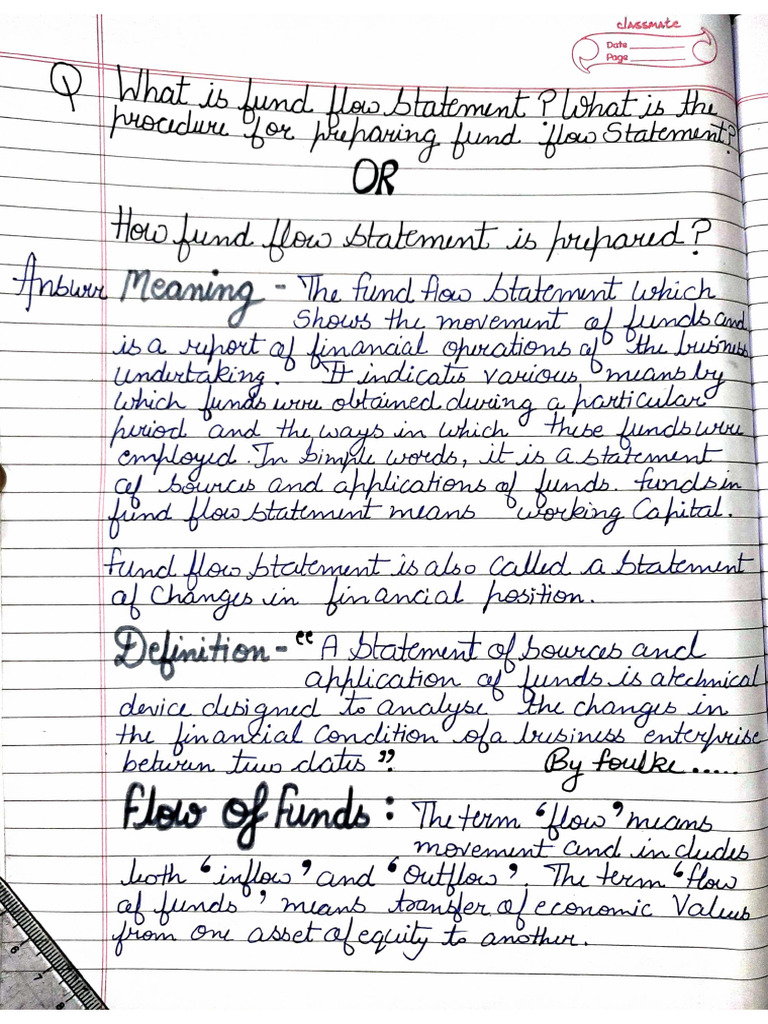 classmate
Date
Page
Q What is fund flow statement? What is the
procedure for preparing fund flow Statement?
OR
How fund flow statement is prepared?
Answer Meaning - The fund flow statement which
shows the movement of funds and
is a report of financial operations of the business
undertaking. It indicates various means by
which funds were obtained during a particular
period and the ways in which these funds were
employed. In simple words, it is a statement
of sources and applications of funds. funds in
fund flow statement means working Capital.
fund flow statement is also called a statement
of Changes in financial position.
Definition - " A statement of sources and
application of funds is a technical
device designed to analyse the changes in
the financial condition of a business enterprise
between two dates". By foulke.....
Flow of Funds : The term 'flow' means
movement and includes
both 'inflow' and 'outflow'. The term 'flow
of funds' means transfer of economic Values
from one asset of equity to another.
6
7
8